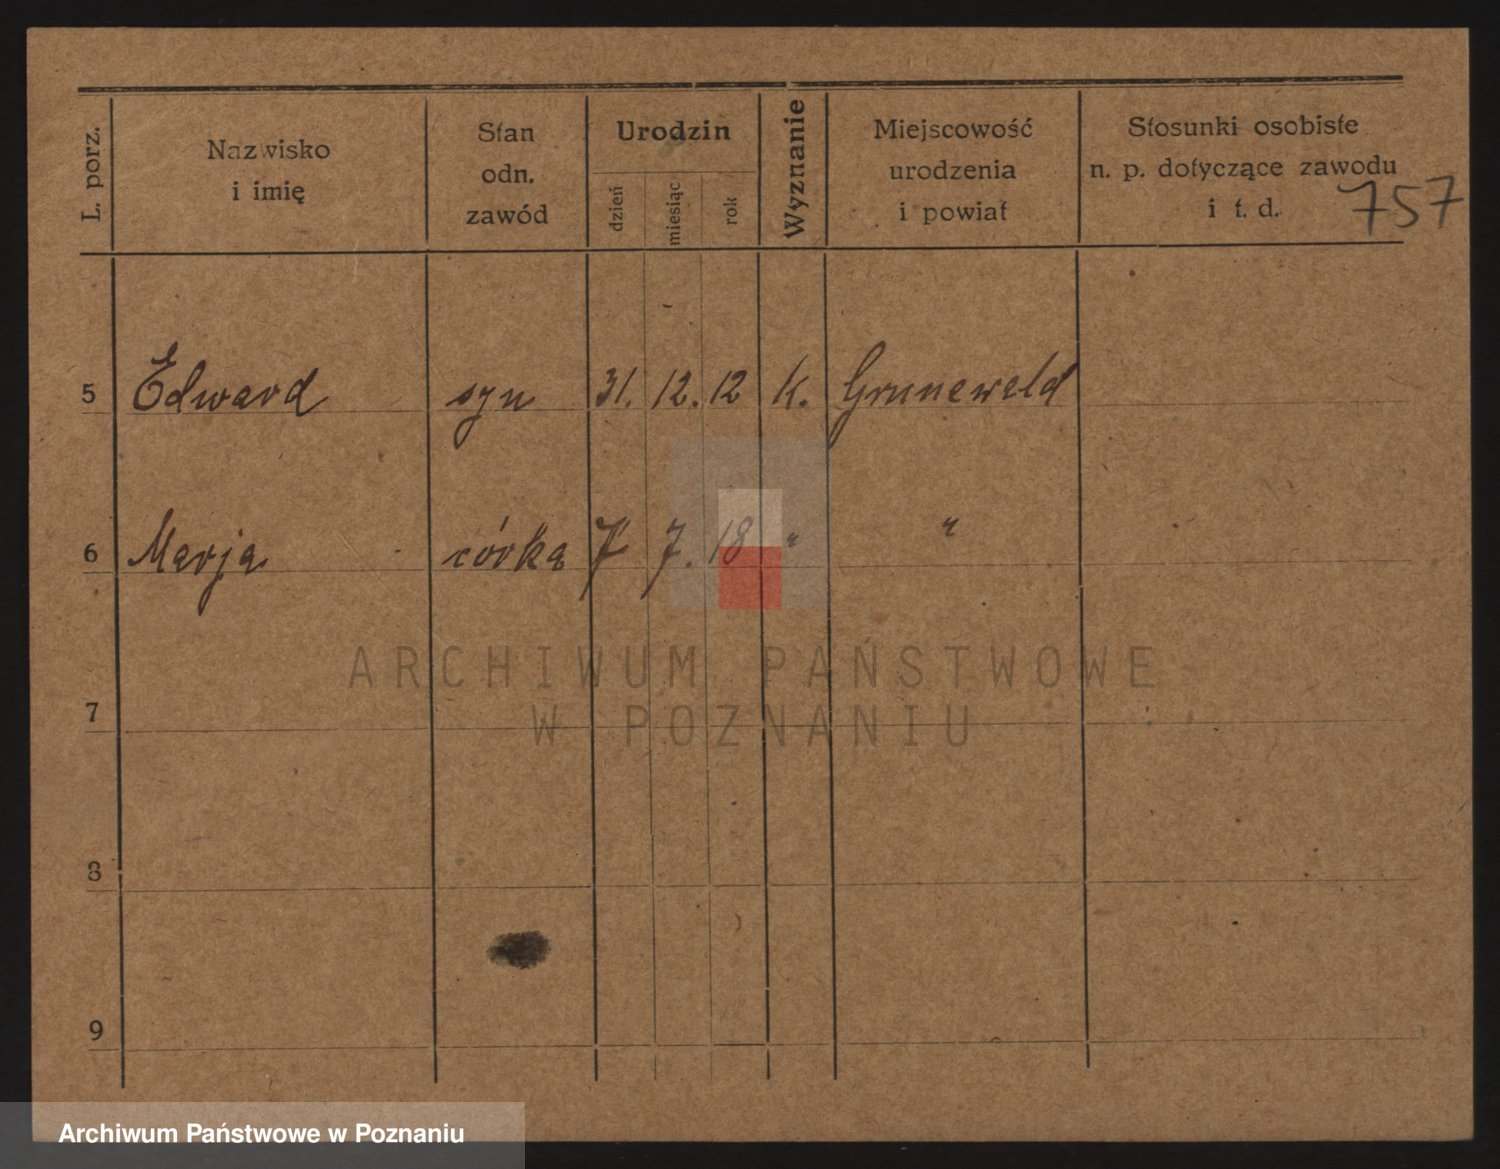 L. porz.
Nazwisko
i imię
Stan
odn.
zawód
Urodzin
dzień
miesiąc
rok
Wyznanie
Miejscowość
urodzenia
i powiat
Stosunki osobiste
n. p. dotyczące zawodu
i t. d.
757
5 Edward syn 31. 12. 12 k. Grunewald
6 Marja córka 7 7. 18 " "
ARCHIWUM PAŃSTWOWE
W POZNANIU
7
8
9
Archiwum Państwowe w Poznaniu